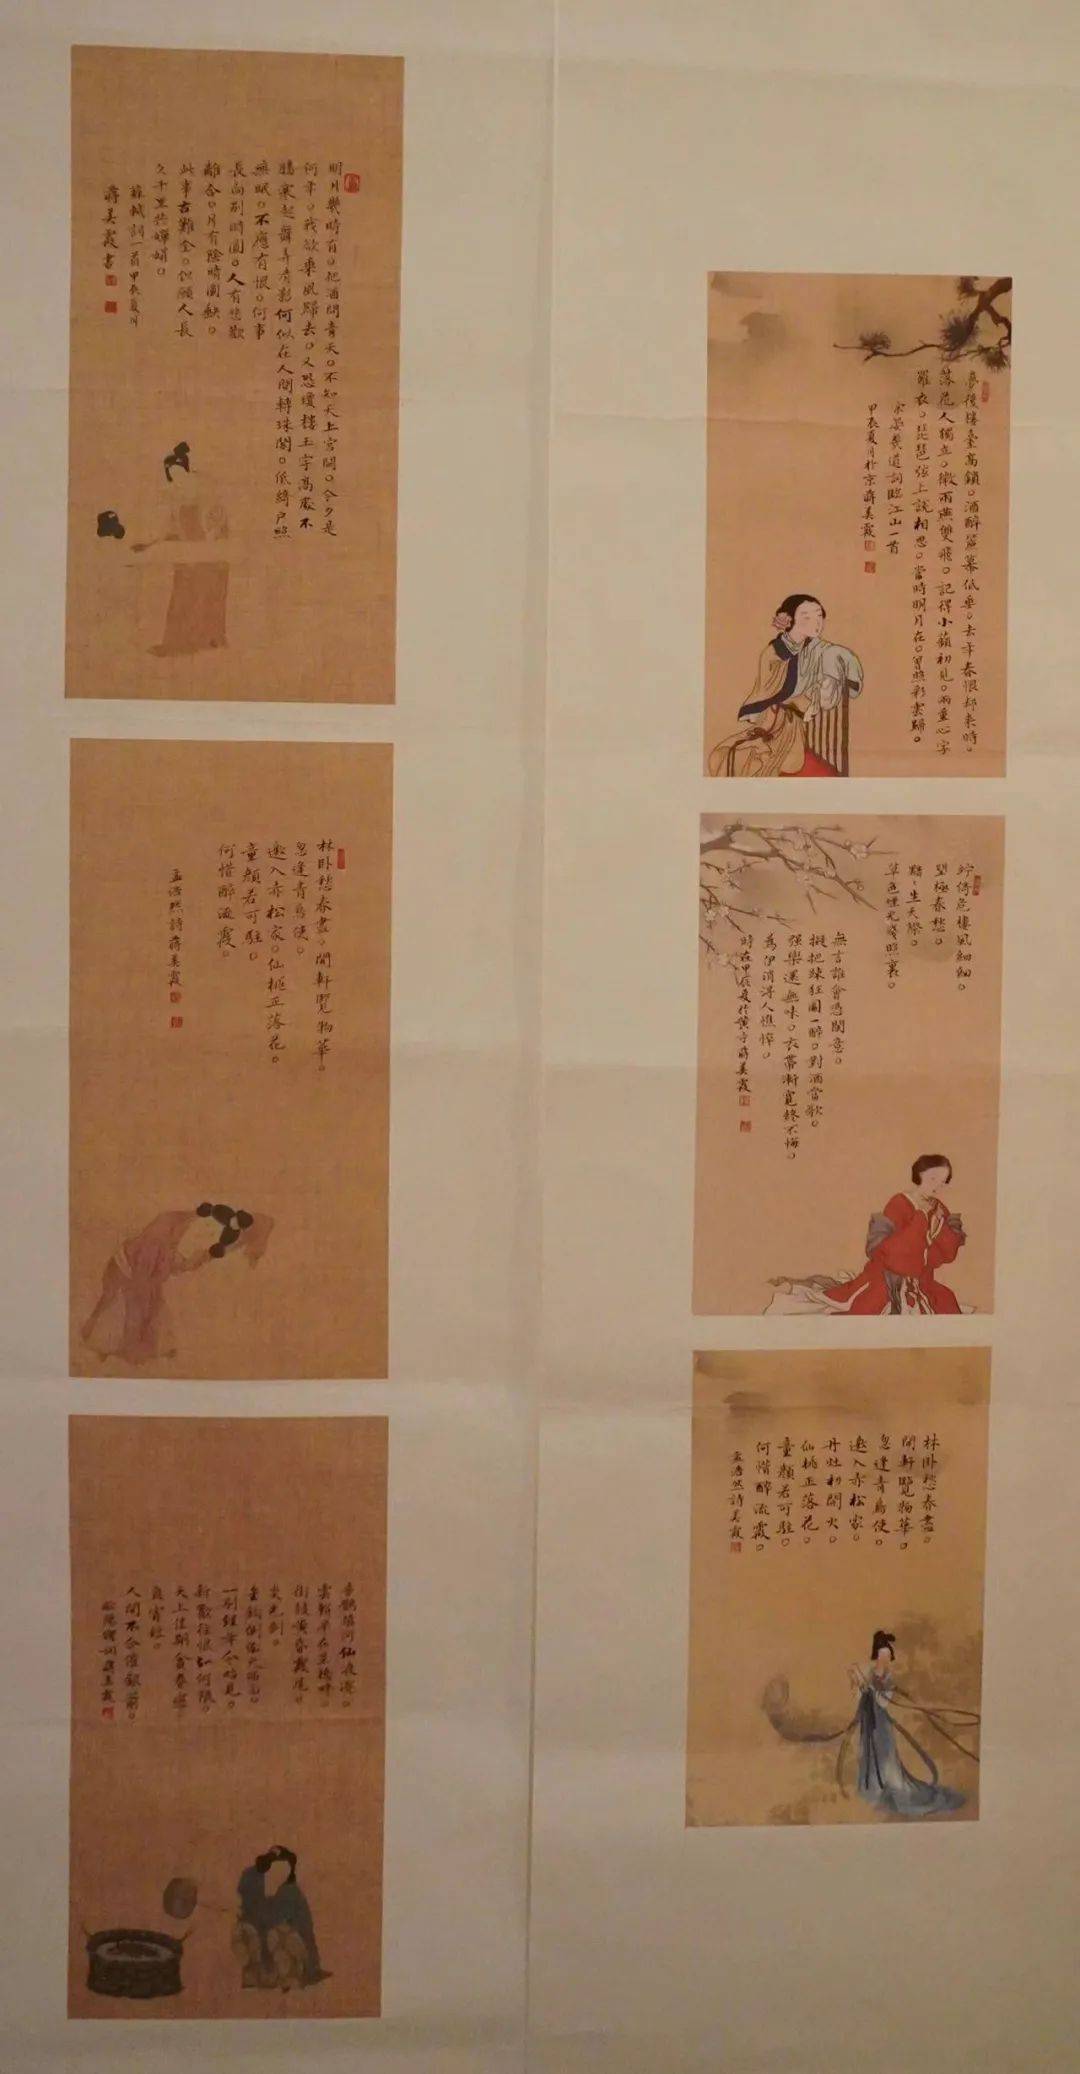 夢後樓臺高鎖。酒醉簾幕低垂。去年春恨却来時。
落花人獨立。微雨燕雙飛。記得小蘋初見。兩重心字
羅衣。琵琶弦上說相思。當時明月在。曾照彩雲歸。
宋晏幾道詞臨江山一首
甲辰夏月於京蔣美霞
竚倚危樓風細細。
望極春愁。
黯々生天際。
草色煙光殘照裏。
無言誰會憑闌意。
擬把疎狂圖一醉。對酒當歌。
強樂還無味。衣帶漸寬終不悔。
為伊消得人憔悴。
時在甲辰夏於黄寺蔣美霞
林卧愁春盡。
開軒覽物華。
忽逢青鳥使。
邀入赤松家。
丹灶初開火。
仙桃正落花。
童顏若可駐。
何惜醉流霞。
孟浩然詩美霞
明月幾時有。把酒問青天。不知天上宮闕。今夕是
何年。我欲乘風歸去。又恐瓊樓玉宇高處不
勝寒起舞弄清影何似在人間轉珠閣。低綺户照
無眠。不應有恨。何事
長向別時圓。人有悲歡
離合。月有陰晴圓缺。
此事古難全。但願人長
久千里共嬋娟。
蘇軾詞一首甲辰夏月
蔣美霞書
林卧愁春盡。開軒覽物華。
忽逢青鳥使。
邀入赤松家。仙桃正落花。
童顏若可駐。
何惜醉流霞。
孟浩然詩蔣美霞
喜鵲填河仙浪淺。
雲軿早在星橋畔。
街鼓黃昏霞尾
炎光斂。
金鈎側倒天西面。
一別經年今始見。
新歡往恨知何限。
天上佳期貪眷戀。
良宵短。
人間不合催銀箭。
歐陽脩詞蔣美霞